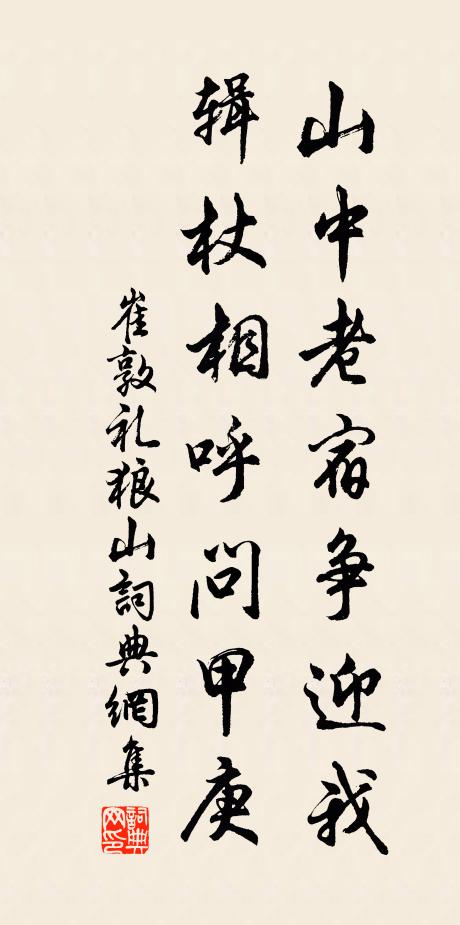 山中老宿争迎我
輯杖相呼問甲庚
崔敦礼狼山詞典網集
詞典网印